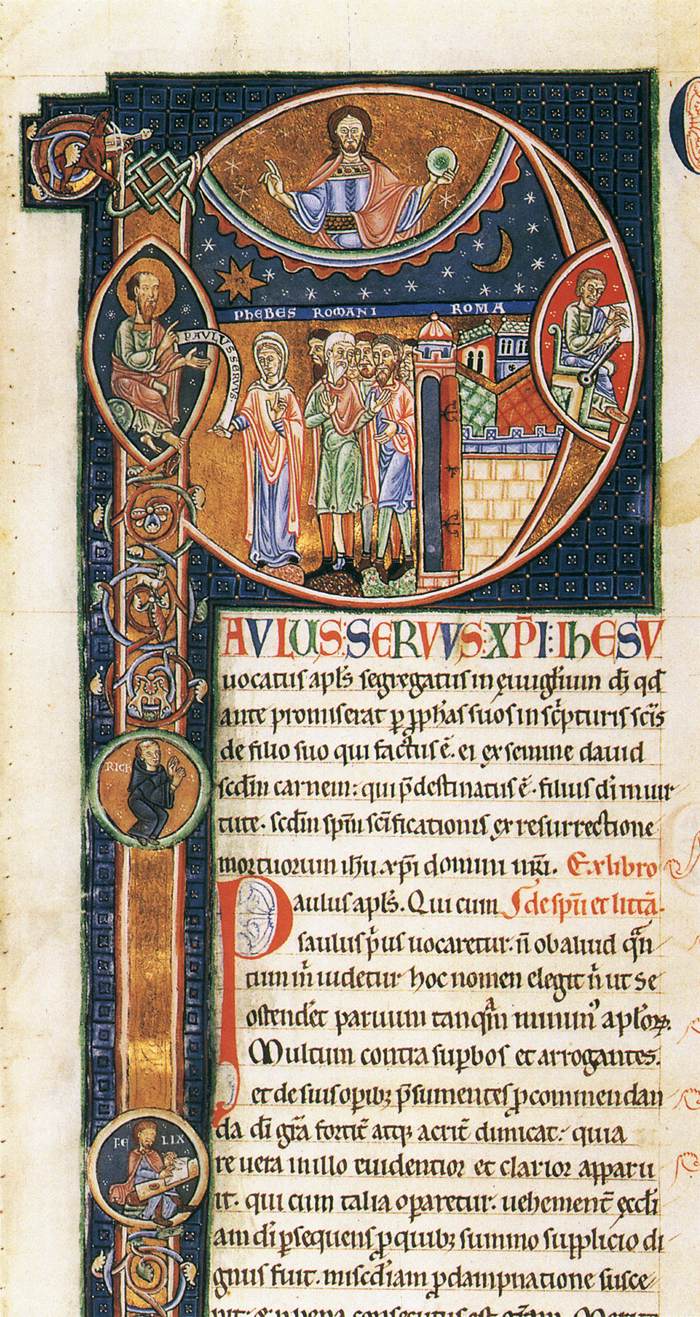 PHEBES ROMANI ROMA
PAVLVS SERVVS
AVLUS: SERVVS: XP̄I: IhESV
uocatus apłs segregatus in euuḡlium dī qd̄
ante promiserat p ꝓphas suos in sc̄pturis sc̄is
de filio suo qui factus ē. ei ex semine dauid
scdm̄ carnem: qui p̄destinatus ē. filius dī in uir
tute. scdm̄ spm̄ sc̄ificationis ex resurrectione
RICH
mortuorum ihū xp̄i domini nr̄i. Ex libro
Paulus apłs. Qui cum S de spū et litt̄a.
saulus p̄us uocaretur. n̄ ob aliud q̄n
tum m̄ uidetur hoc nomen elegit n̄ ut se
ostend̄et paruum tanq̄m minimꝰ apłoꝝ.
Multum contra supbos et arrogantes.
et de suis opibꝫ p̄sumentes ꝓ commendan
da dī gr̄a fortit̄ atqꝫ acrit̄ dimicat. quia
FELIX
re uera in illo euidentior et clarior apparu
it. qui cum talia oparetur. uehement̄ eccłi
am dī psequens ꝓ quibꝫ summo supplicio di
gnus fuit. misc̄diam ꝓ dampnatione susce